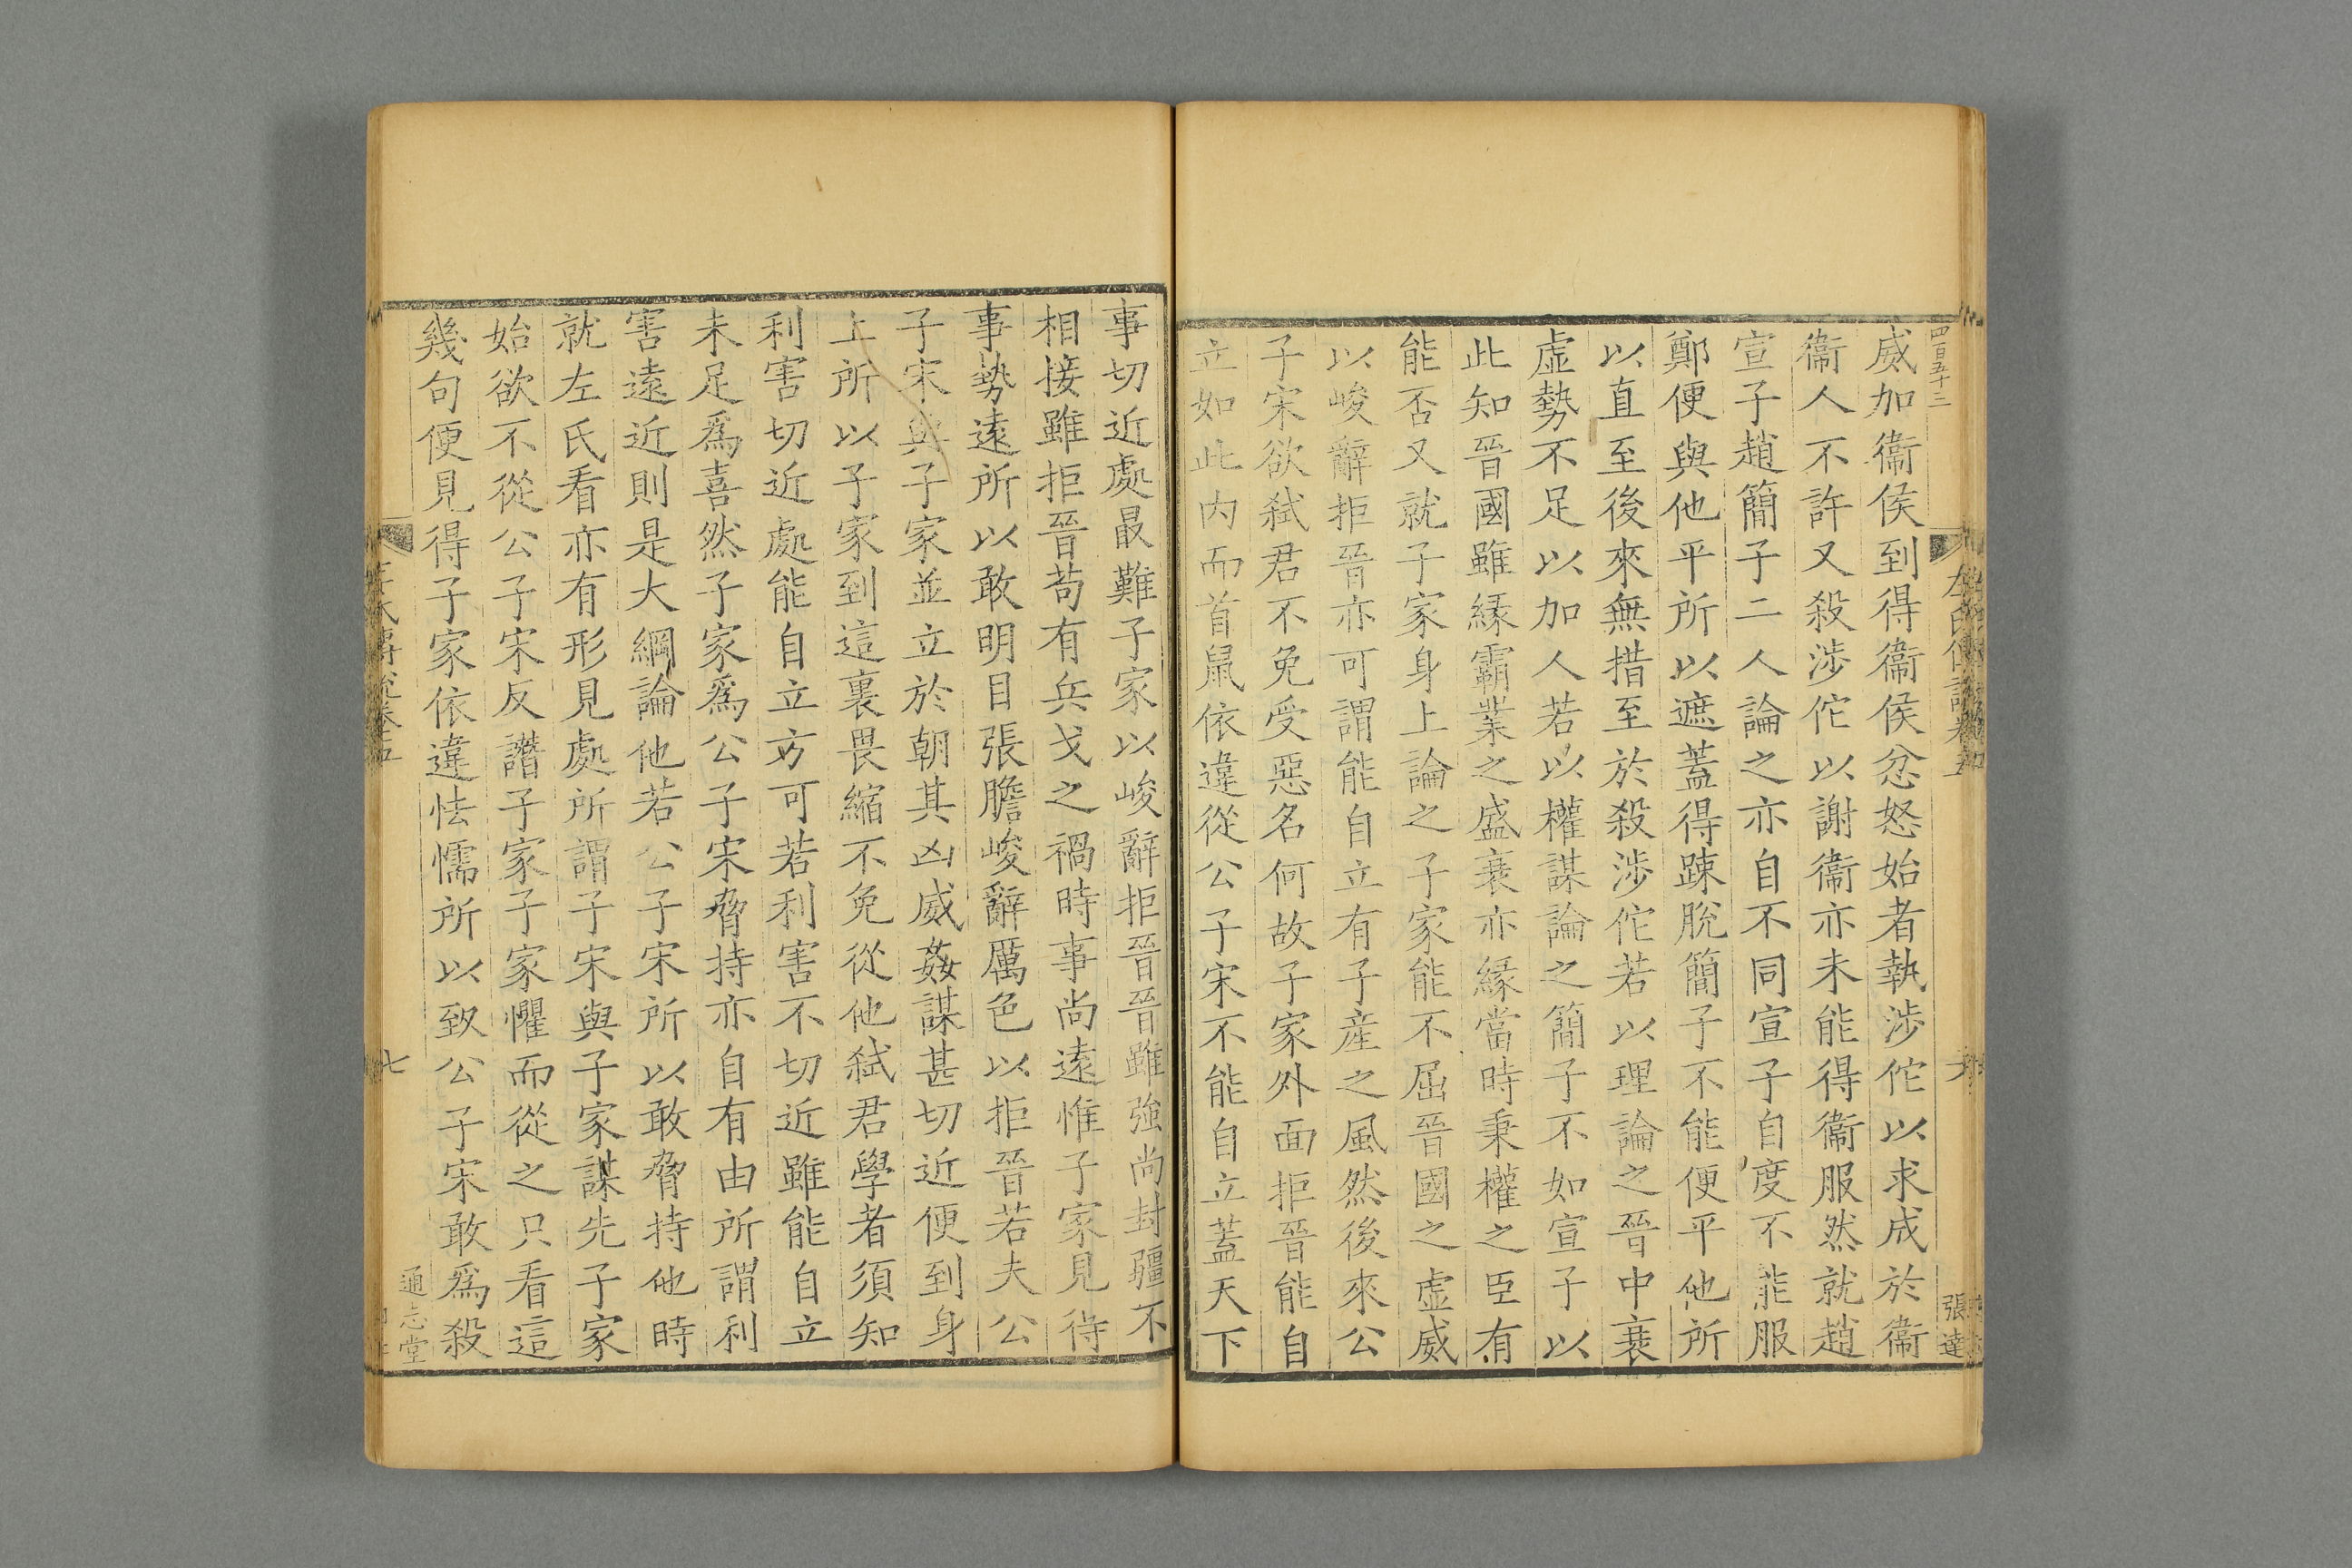 四百五十三
威加衞侯到得衞侯忿怒始者執涉佗以求成於衞
衞人不許又殺涉佗以謝衞亦未能得衞服然就趙
宣子趙簡子二人論之亦自不同宣子自度不能服
鄭便與他平所以遮蓋得踈脫簡子不能便平他所
以直至後來無措至於殺涉佗若以理論之晉中衰
虛勢不足以加人若以權謀論之簡子不如宣子以
此知晉國雖緣霸業之盛衰亦緣當時秉權之臣有
能否又就子家身上論之子家能不屈晉國之虛威
以峻辭拒晉亦可謂能自立有子產之風然後來公
子宋欲弑君不免受惡名何故子家外面拒晉能自
立如此內而首鼠依違從公子宋不能自立蓋天下
張達
事切近處最難子家以峻辭拒晉晉雖強尚封疆不
相接雖拒晉苟有兵戈之禍時事尚遠惟子家見待
事勢遠所以敢明目張膽峻辭厲色以拒晉若夫公
子宋與子家並立於朝其凶威姦謀甚切近便到身
上所以子家到這裏畏縮不免從他弑君學者須知
利害切近處能自立方可若利害不切近雖能自立
未足爲喜然子家爲公子宋脅持亦自有由所謂利
害遠近則是大綱論他若公子宋所以敢脅持他時
就左氏看亦有形見處所謂子宋與子家謀先子家
始欲不從公子宋反譖子家子家懼而從之只看這
幾句便見得子家依違怯懦所以致公子宋敢爲殺
七
通志堂